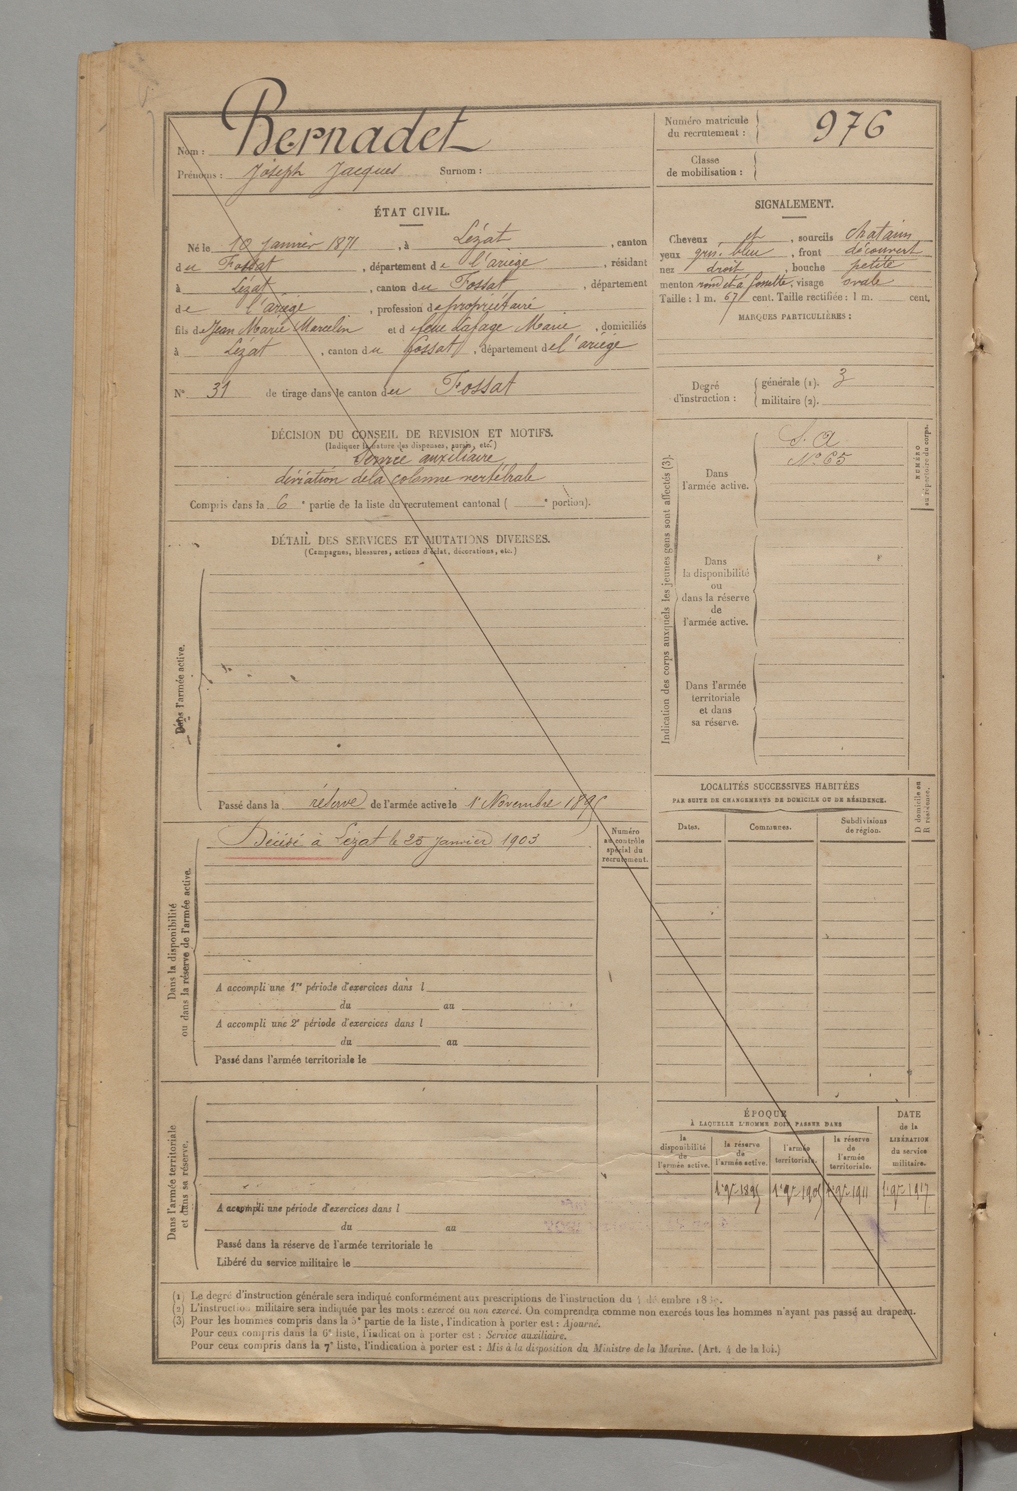 Nom : Bernadet
Prénoms : Joseph Jacques Surnom :
Numéro matricule du recrutement : 976
Classe de mobilisation :
ÉTAT CIVIL.
Né le 10 Janvier 1871, à Lézat, canton
du Fossat, département de l'ariège, résidant
à Lézat, canton du Fossat, département
de l'ariège, profession de propriétaire
fils de Jean Marie Marcelin et de feue Lafage Marie, domiciliés
à Lézat, canton du Fossat, département de l'ariège
N° 31 de tirage dans le canton du Fossat
SIGNALEMENT.
Cheveux et, sourcils chatains
yeux gris-bleu, front découvert
nez droit, bouche petite
menton rond et à fossette. visage ovale
Taille : 1 m. 67 cent. Taille rectifiée : 1 m. cent.
MARQUES PARTICULIÈRES :
Degré d'instruction : générale (1). 3
militaire (2).
DÉCISION DU CONSEIL DE REVISION ET MOTIFS.
(Indiquer la nature des dispenses, sursis, etc.)
Service auxiliaire
déviation de la colonne vertébrale
Compris dans la 6e partie de la liste du recrutement cantonal ( e portion).
DÉTAIL DES SERVICES ET MUTATIONS DIVERSES.
(Campagnes, blessures, actions d'éclat, décorations, etc.)
Dans l'armée active.
Passé dans la réserve de l'armée active le 1er Novembre 1895
Indication des corps auxquels les jeunes gens sont affectés (3).
NUMÉRO au répertoire du corps.
Dans l'armée active.
S. A
N° 65
Dans la disponibilité ou dans la réserve de l'armée active.
Dans l'armée territoriale et dans sa réserve.
Dans la disponibilité ou dans la réserve de l'armée active.
Décédé à Lézat le 25 Janvier 1903
Numéro au contrôle spécial du recrutement.
A accompli une 1re période d'exercices dans l
du au
A accompli une 2e période d'exercices dans l
du au
Passé dans l'armée territoriale le
LOCALITÉS SUCCESSIVES HABITÉES
PAR SUITE DE CHANGEMENTS DE DOMICILE OU DE RÉSIDENCE.
D domicile ou R résidence.
Dates. Communes. Subdivisions de région.
Dans l'armée territoriale et dans sa réserve.
A accompli une période d'exercices dans l
du au
Passé dans la réserve de l'armée territoriale le
Libéré du service militaire le
ÉPOQUE
À LAQUELLE L'HOMME DOIT PASSER DANS
DATE de la LIBÉRATION du service militaire.
la disponibilité de l'armée active. la réserve de l'armée active. l'armée territoriale. la réserve de l'armée territoriale.
1895 1905 1911 1917
(1) Le degré d'instruction générale sera indiqué conformément aux prescriptions de l'instruction du
(2) L'instruction militaire sera indiquée par les mots : exercé ou non exercé. On comprendra comme non exercés tous les hommes n'ayant pas passé au drapeau.
(3) Pour les hommes compris dans la 5e partie de la liste, l'indication à porter est : Ajourné.
Pour ceux compris dans la 6e liste, l'indication à porter est : Service auxiliaire.
Pour ceux compris dans la 7e liste, l'indication à porter est : Mis à la disposition du Ministre de la Marine. (Art. 4 de la loi.)